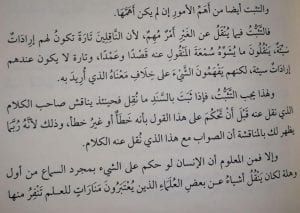 والتثبت أيضا من أهَمِّ الأمورِ إن لم يكن أهَمَّهَا.
فالتَّثَبُّتُ فيما يُنْقَلُ عن الغَيْرِ أمرٌ مُهِمٌّ، لأن النَّاقِلِينَ تَارَةً تكونُ لهم إرَادَاتٌ
سيئة، يَنْقُلُونَ ما يُشَوِّهُ سُمْعَةَ المَنْقُولِ عنه قَصْدًا وعَمْدًا، وتارة لا يكون عندهم
إرَادَاتٌ سيئة، لكنهم يَفْهَمُونَ الشَّيْءَ على خِلَافِ مَعْنَاهُ الذي أُرِيدَ به.
وهذا يجب التَّثَبُّتُ، فإذا ثبَتَ بالسَّنَدِ ما نُقِل فحينئذ يناقش صاحب الكلام
الذي نقل عنه قَبْلَ أَنْ تَحْكُمَ على هذا القول بأنه خطأٌ أو غيرُ خطأ، وذلك لأنه رُبَّمَا
يظهر لك بالمناقشة أن الصواب مع هذا الذي نُقِل عنه الكلام.
وإلا فمن المعلوم أن الإنسان لو حكم على الشيء بمجرد السماع من أول
وهلة لكان يَنْقُلُ أشياءَ عن بعضِ العُلَمَاءِ الذين يُعْتَبَرُونَ مَنَارَاتٍ للعلم تَنْفِرُ منها